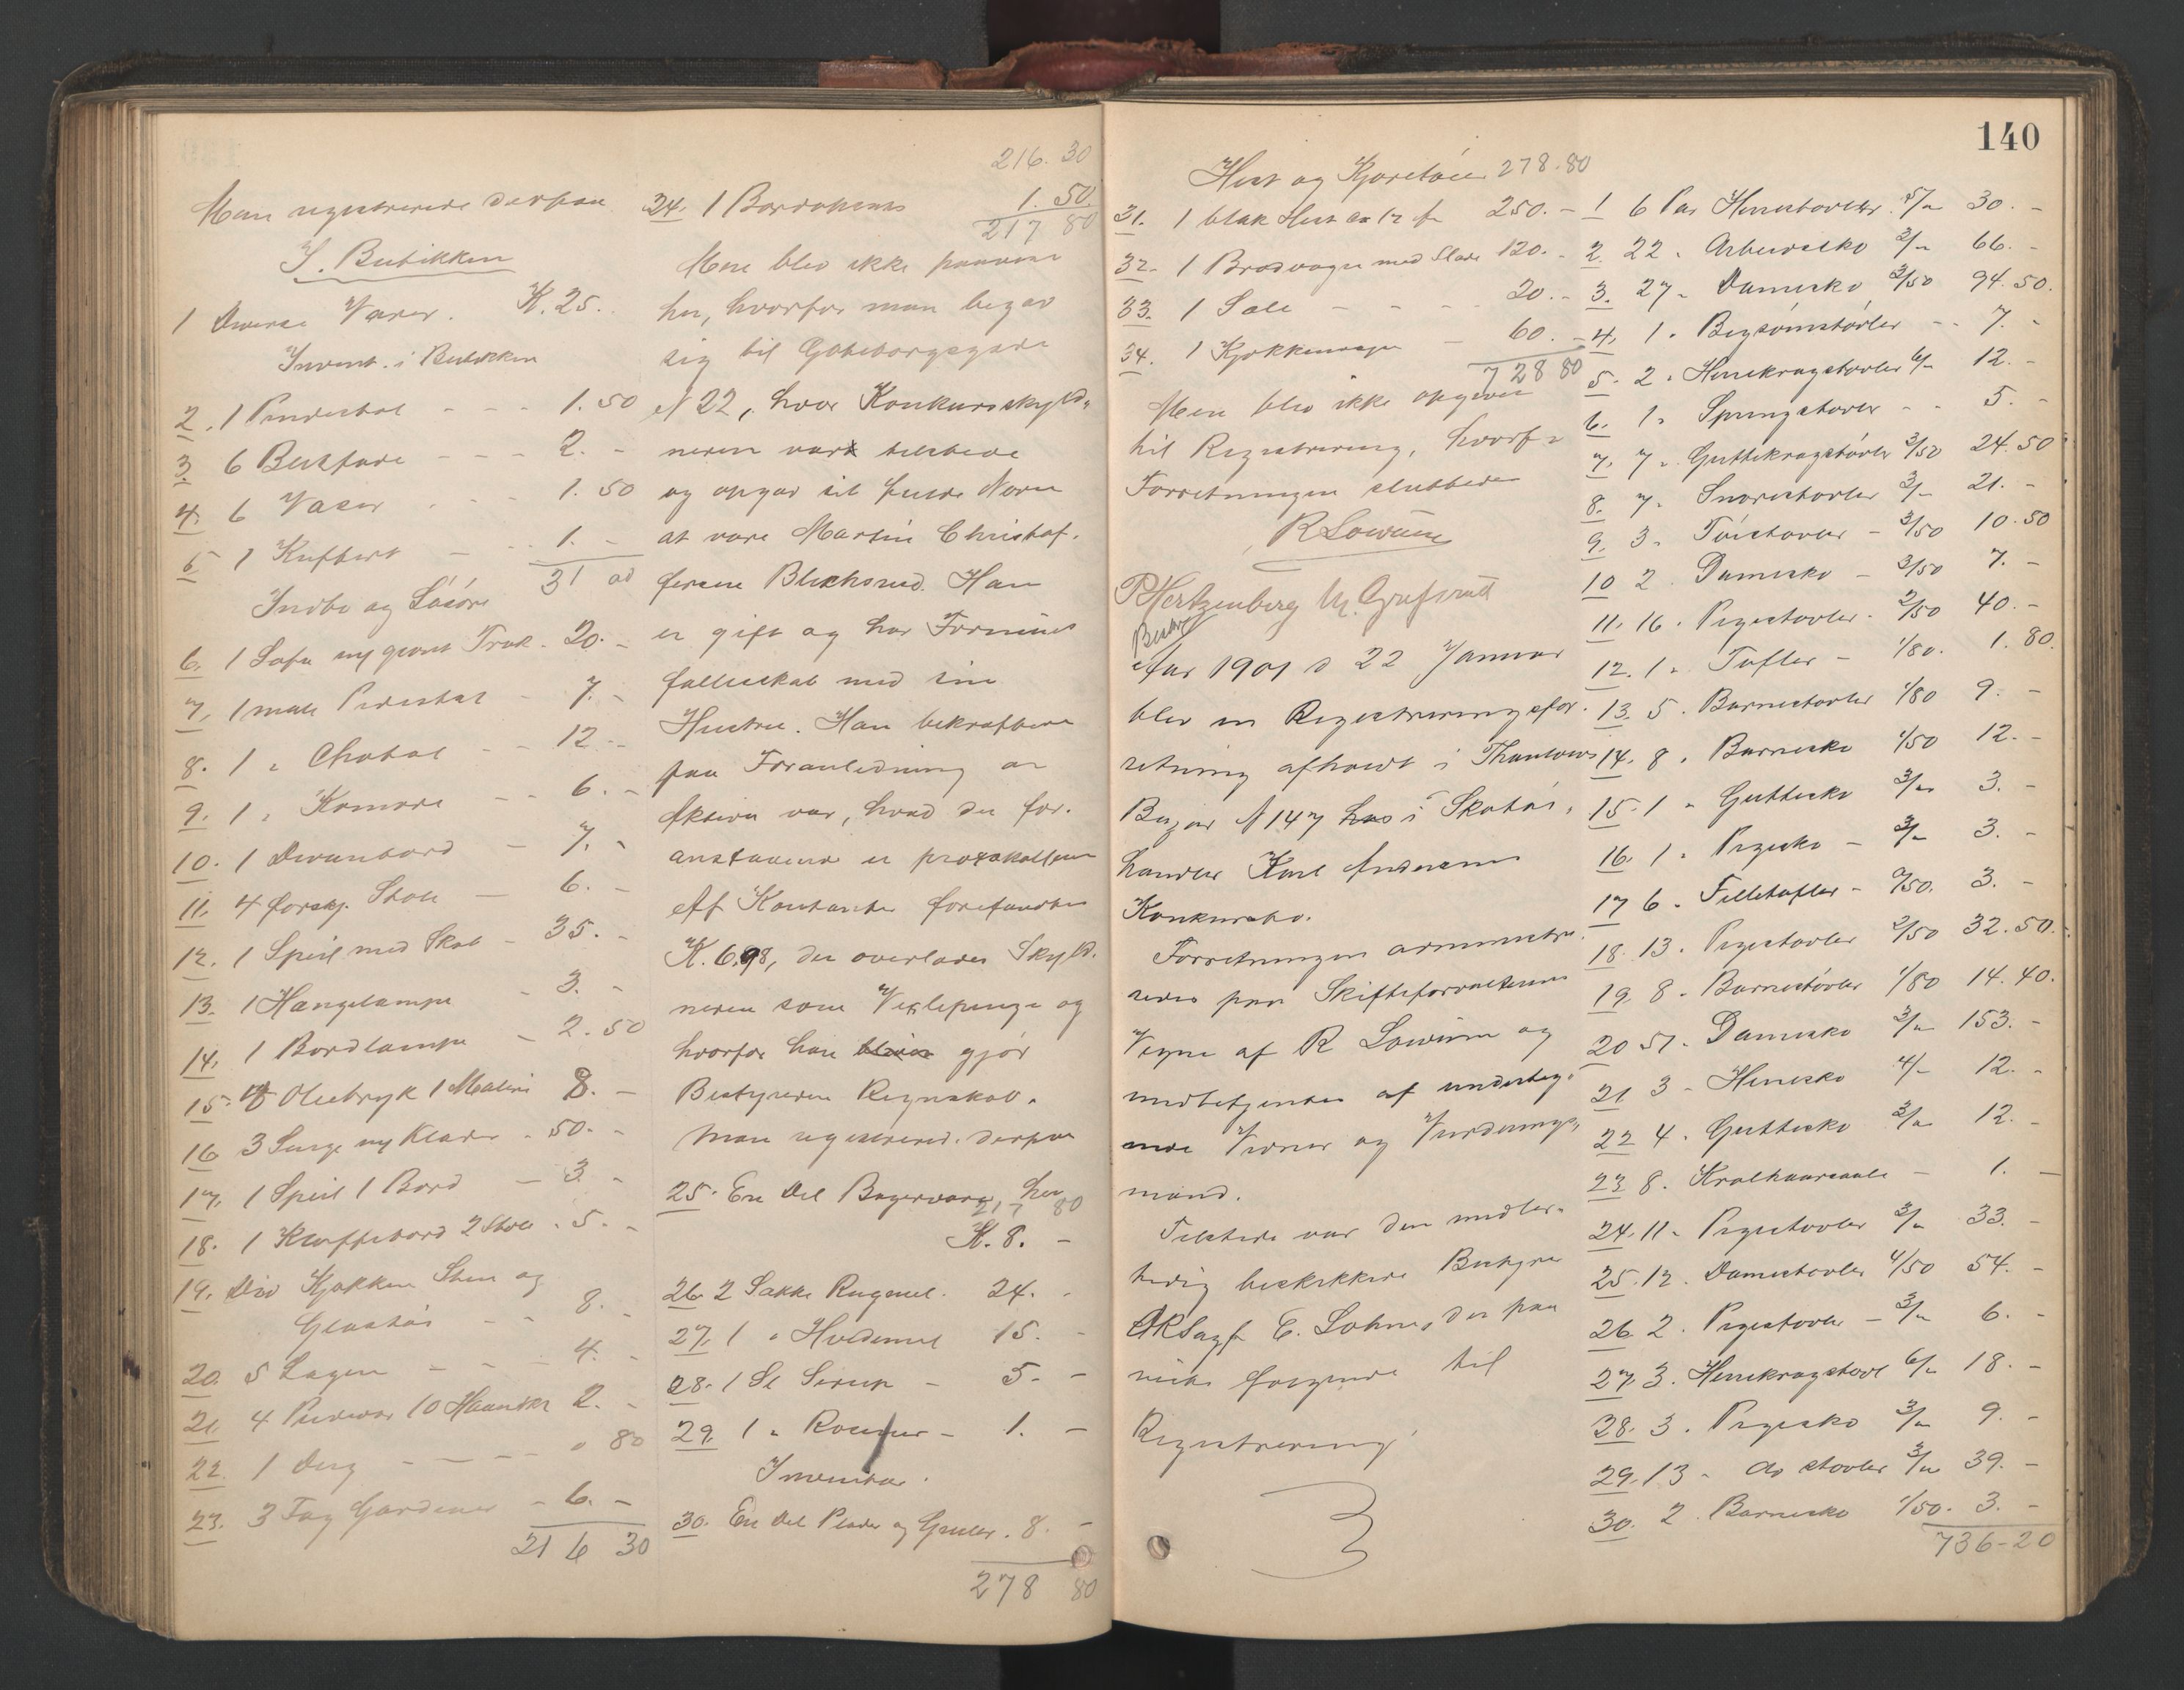 Man registrerede derpaa
I. Butikken
1 Diverse Varer. K. 25.
Invent. i Butikken
2. 1 Pendestol - - - 1.50
3. 6 Blikfade - - - 2. -
4. 6 Vaser - - 1.50
5 1 Kuffert - - 1. -
31 00
Indbo og Løsøre
6. 1 Sofa mygront Træk - 20. -
7. 1 malt Pidestal - 7. -
8. 1 " Chatol - - 12 -
9. 1 " Komode - - 6. -
10. 1 Divanbord - 7. -
11. 4 forskj. Stole - 6. -
12. 1 Speil med Skab - 35. -
13. 1 Hængelampe - 3. -
14. 1 Bordlampe - 2.50
15. 8 Olietryk 1 Maleri 8. -
16 3 Senge m Klæder - 50. -
17. 1 Speil 1 Bord - 3. -
18. 1 Klaffebord 2 Stole - 5. -
19. Div Kjøkken Sten og
Glastøi - - 8. -
20. 5 Lagen - - - 4. -
21. 4 Pudevar 10 Haandkl 2. -
22. 1 Dug - - - " 80
23. 3 Fag Gardiner - 6. -
216 30
216. 30
24. 1 Bordopsats 1. 50
217 80
Mere blev ikke paavist
her, hvorfor man begav
sig til Gøteborggade
N 22, hvor Konkursskyld-
neren var tilstede
og opgav sit fulde Navn
at være Martin Christof-
fersen Blichsrud. Han
er gift og har Formues
fællesskab med sin
Hustru. Han bekræftede
paa Foranledning at
Aktiva var, hvad der for-
anstaaende er protokolleret
Af Kontanter forefandtes
K. 6.98, der overlades Skyld-
neren som Vexlepenge og
hvorfor han gjør
Bestyreren Regnskab.
Man registrered. derpaa
25. En Del Bagervarer, her
217 80
K. 8. -
26. 2 Sække Rugmel. 24. -
27. 1 " Hvedemel 15. -
28. 1 Sl Sirup - 5. -
29. 1 " Rosiner - 1. -
Inventar.
30. En Del Plader og Greier. 8. -
278 80
140
Hest og Kjøretøier 278.80
31. 1 blak Hest ca 12 fr 250. -
32. 1 Brødvogn med Slæde 120. -
33. 1 Sæle - - - 20. -
34. 1 Kjøkkenvogn - 60. -
728 80
Mere blev ikke opgivet
til Registrering, hvorf-
Forretningen sluttedes
R Lowum
P Hertzenberg M. Grefsrud
Aar 1901 d 22 Januar
blev en Registreringsfor-
retning afholdt i Thaulows
Bazar N 147 i Skotøi-
handler Karl Andersens
Konkursbo.
Forretningen administre-
redes paa Skifteforvalterens
Vegne af R Lowum og
medbetjentes af undertegn-
ede Vidner og Vurderings-
mænd.
Tilstede var den midler-
tidig beskikkede Bestyrer
ORSagf. E. Lohne, der paa
viste følgende til
Registrering
1 6 Par Herrestøvler 5/- 30. -
2. 22 " Arbeidssko 3/- 66. -
3. 27 " Damesko 3/50 94.50.
4. 1 " Begsømstøvler - - 7. -
5. 2 " Herrekragstøvler 6/- 12. -
6. 1 " Springstøvler - - 5. -
7. 7 " Guttekragstøvler 3/50 24.50
8. 7 " Snorestøvler 3/- 21. -
9. 3 " Tøistøvler - 3/50 10.50
10 2 " Damesko - 3/50 7. -
11. 16 " Pigestøvler - 2/50 40. -
12. 1 " Tøfler - 1/80. 1.80.
13. 5 " Barnestøvler 1/80 9. -
14. 8 " Barnesko 1/50 12. -
15. 1 " Guttesko 3/- 3. -
16. 1 " Pigesko - 3/- 3. -
17 6 " Filletøfler - 0/50. 3. -
18. 13 " Pigestøvler 2/50 32.50.
19. 8 " Barnestøvler 1/80 14.40.
20 51 " Damesko 3/- 153. -
21 3 " Herresko 4/- 12. -
22 4 " Guttesko 3/- 12. -
23 8 " Krølhaarsaale - 1. -
24. 11 " Pigestøvler 3/- 33. -
25. 12 " Damestøvler 4/50 54. -
26 2 " Pigestøvler - 3/- 6. -
27. 3 " Herrekragstøvl 6/- 18. -
28. 3 " Pigesko 3/- 9. -
29. 13 " do støvler 3/- 39. -
30. 2 " Barnesko 1/50. 3. -
736-20